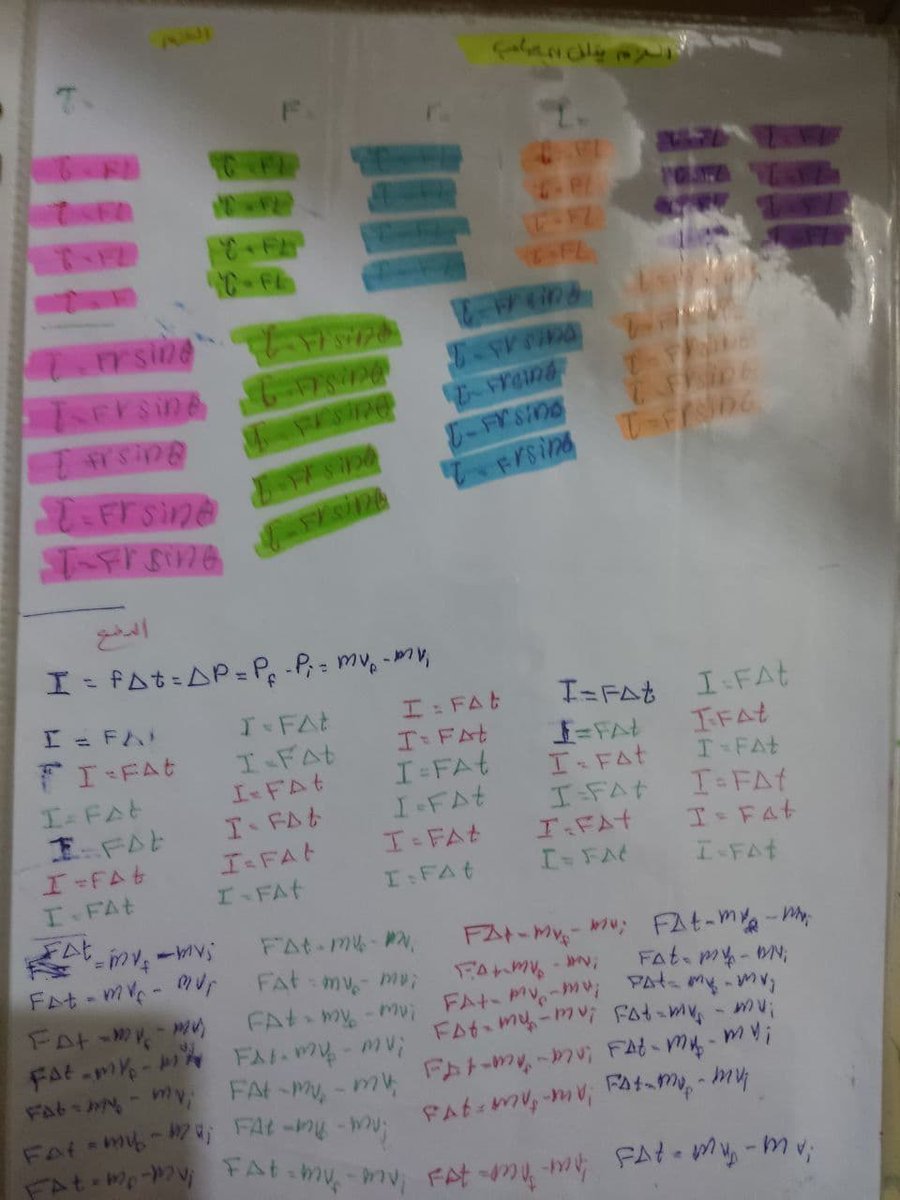 العزم
τ= F= r= τ=
τ=FL τ=FL τ=FL τ=FL τ=FL τ=FL
τ=FL τ=FL τ=FL τ=FL τ=FL τ=FL
τ=FL τ=FL τ=FL τ=FL
τ=FL τ=FL τ=FL
τ=Fr sinθ τ=Fr sinθ τ=Fr sinθ
τ=Fr sinθ τ=Fr sinθ τ=Fr sinθ τ=Fr sinθ
τ Fr sinθ τ=Fr sinθ τ=Fr sinθ τ=Fr sinθ
τ=Fr sinθ τ=Fr sinθ τ=Fr sinθ τ=Fr sinθ
τ=Fr sinθ τ=Fr sinθ τ=Fr sinθ
الدفع
I = FΔt = ΔP = Pf - Pi = mvf - mvi
I = FΔt I = FΔt I = FΔt I = FΔt
I = FΔt I = FΔt I = FΔt I = FΔt
I = FΔt I = FΔt I = FΔt I = FΔt I = FΔt
I = FΔt I = FΔt I = FΔt I = FΔt I = FΔt
I = FΔt I = FΔt I = FΔt I = FΔt I = FΔt
I = FΔt I = FΔt I = FΔt I = FΔt I = FΔt
I = FΔt
FΔt = mvf - mvi FΔt = mvf - mvi FΔt = mvf - mvi FΔt = mvf - mvi
FΔt = mvf - mvi FΔt = mvf - mvi FΔt = mvf - mvi FΔt = mvf - mvi
FΔt = mvf - mvi FΔt = mvf - mvi FΔt = mvf - mvi FΔt = mvf - mvi
FΔt = mvf - mvi FΔt = mvf - mvi FΔt = mvf - mvi FΔt = mvf - mvi
FΔt = mvf - mvi FΔt = mvf - mvi FΔt = mvf - mvi FΔt = mvf - mvi
FΔt = mvf - mvi FΔt = mvf - mvi FΔt = mvf - mvi FΔt = mvf - mvi
FΔt = mvf - mvi FΔt = mvf - mvi FΔt = mvf - mvi FΔt = mvf - mvi